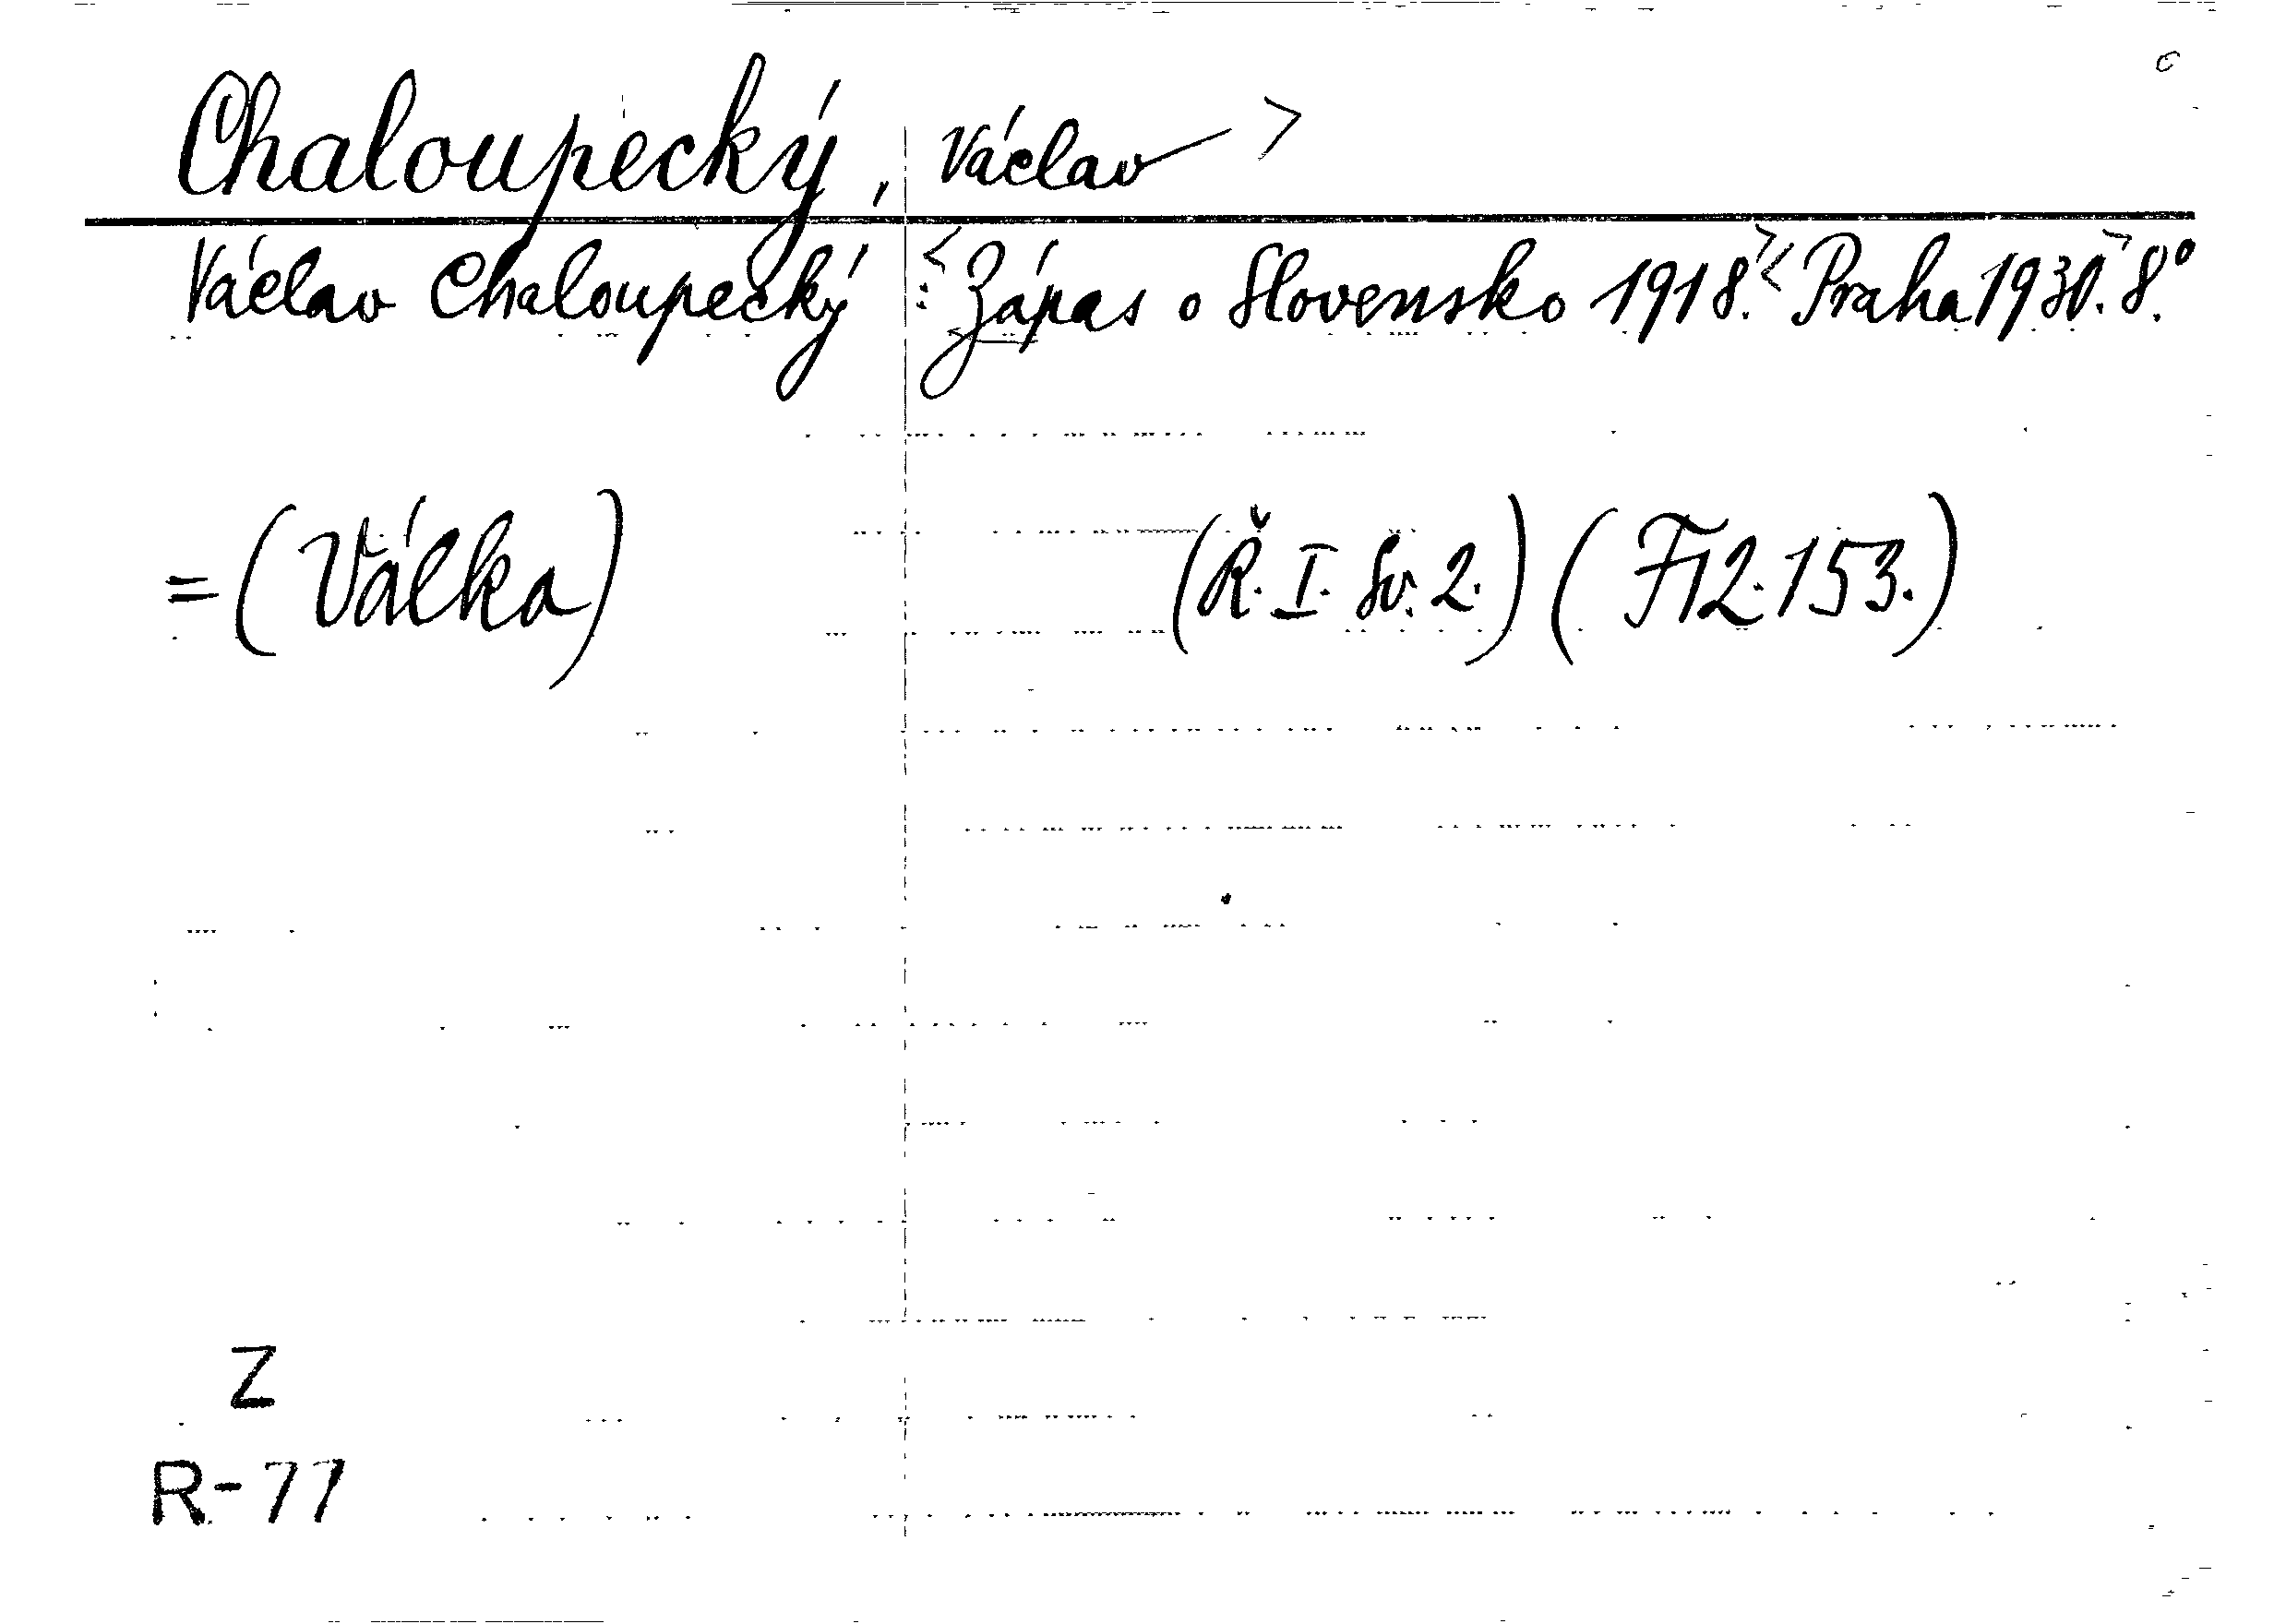 Chaloupecký, Václav >
Václav Chaloupecký: <Zápas o Slovensko 1918.> <Praha 1930.> 8.°
=(Válka) (Ř. I. Sv. 2.) (F12.153.)
Z
R-77